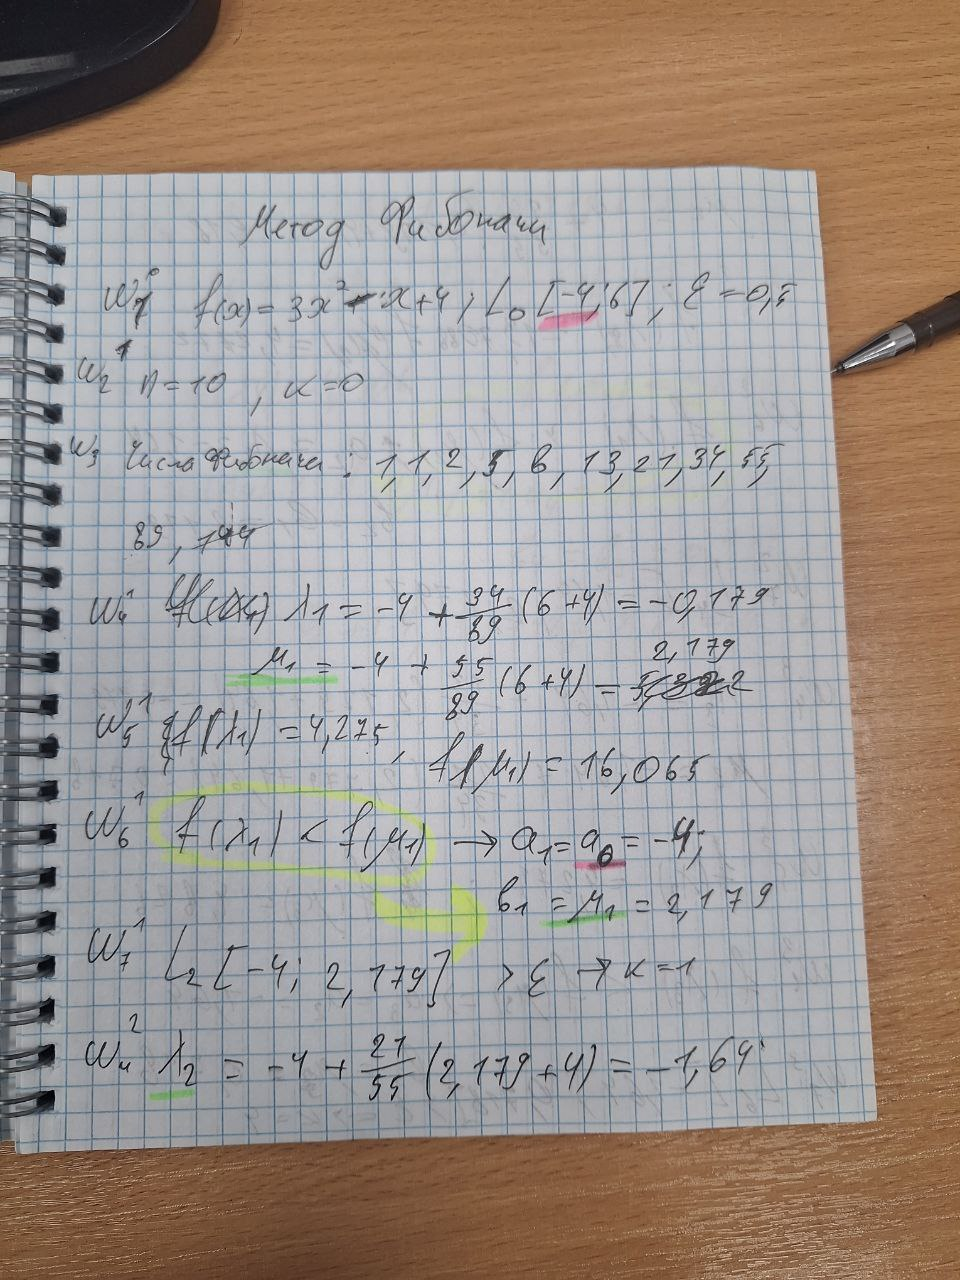 Метод Фибоначи
W1⁰ f(x) = 3x² - x + 4 ; L₀ [-4; 6] ; ε = 0,5
W2¹ n = 10 , к = 0
W3 Числа Фибоначи : 1, 1, 2, 5, 8, 13, 21, 34, 55,
89, 144
W4¹ λ1 = -4 + 34/89 (6 + 4) = -0,179
μ1 = -4 + 55/89 (6 + 4) = 2,179
W5¹ f(λ1) = 4,275, f(μ1) = 16,065
W6¹ f(λ1) < f(μ1) → a1 = a0 = -4;
b1 = μ1 = 2,179
W7¹ L2 [-4; 2,179] > ε → к = 1
W4² λ2 = -4 + 21/55 (2,179 + 4) = -1,64